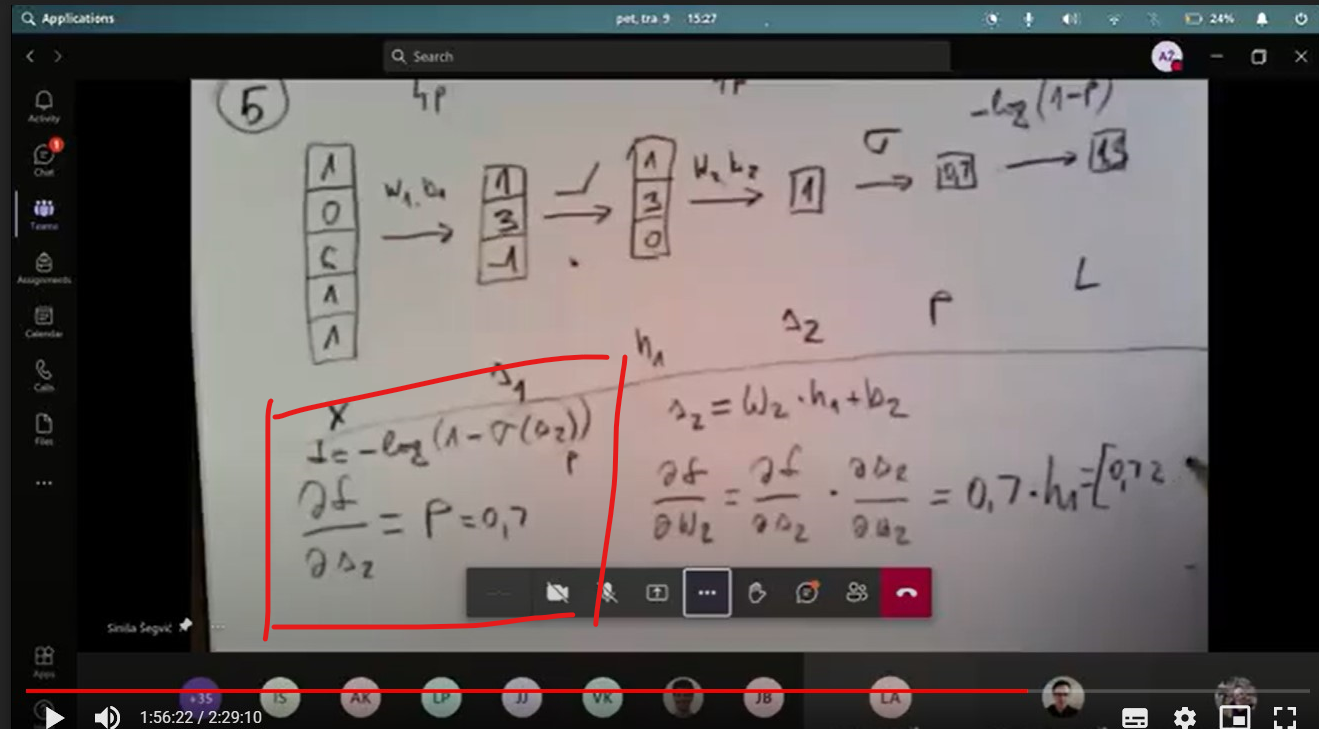 Applications
pet, tra 9 15:27
24%
Search
AŽ
Activity
Chat
Teams
Assignments
Calendar
Calls
Files
Apps
5
-log(1-P)
1
0
1
1
W1, b1
1
3
-1
1
3
0
W2 b2
1
σ
0,7
X
s1
h1
s2
P
L
= -log(1-σ(s2))
P
∂f/∂s2 = P = 0,7
s2 = W2 · h1 + b2
∂f/∂W2 = ∂f/∂s2 · = 0,7 · h1 = [0,7
Siniša Šegvić
+35
IS
AK
LP
JJ
VK
JB
LA
1:56:22 / 2:29:10